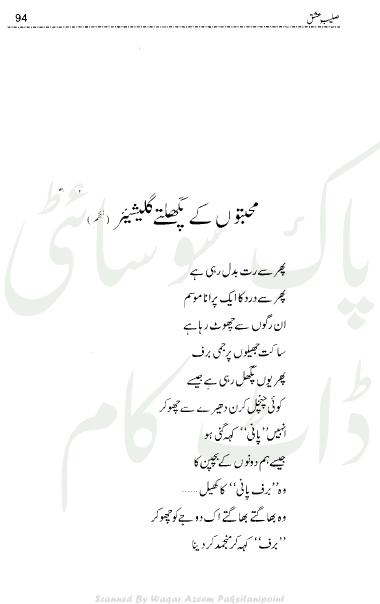 94 صلیبِ عشق
محبتوں کے پگھلتے گلیشیئر (نظم)
پھر سے رت بدل رہی ہے
پھر سے درد کا ایک پرانا موسم
ان رگوں سے چھوٹ رہا ہے
ساکت جھیلوں پر جمی برف
پھر یوں پگھل رہی ہے جیسے
کوئی چنچل کرن دھیرے سے چھو کر
انہیں ’’پانی‘‘ کہہ گئی ہو
جیسے ہم دونوں کے بچپن کا
وہ ’’برف پانی‘‘ کا کھیل ......
وہ بھاگتے بھاگتے اک دوجے کو چھو کر
’’برف‘‘ کہہ کر منجمد کر دینا
پاک سوسائٹی
ڈاٹ کام
Scanned By Waqar Azeem Paksitanipoint